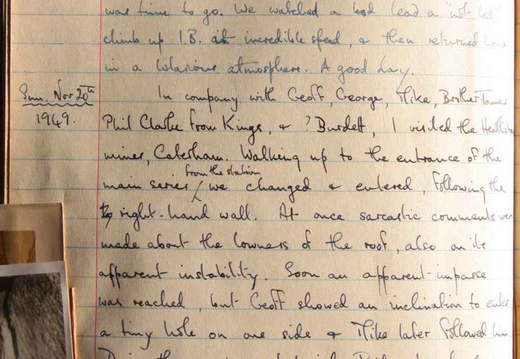 was time to go. We watched a bod lead a "not led"
climb up I.B. at incredible speed, & then returned home
in a hilarious atmosphere. A good day.
Sun. Nov 20th In company with Geoff, George, Mike, Brother James
1949. Phil Clarke from Kings, & ? Burdett, I visited the
mines, Caterham. Walking up to the entrance of the
main series from the station we changed & entered, following the
right-hand wall. At once sarcastic comments were
made about the lowness of the roof, also on its
apparent instability. Soon an apparent impasse
was reached, but Geoff showed an inclination to enter
a tiny hole on one side & Mike later followed him